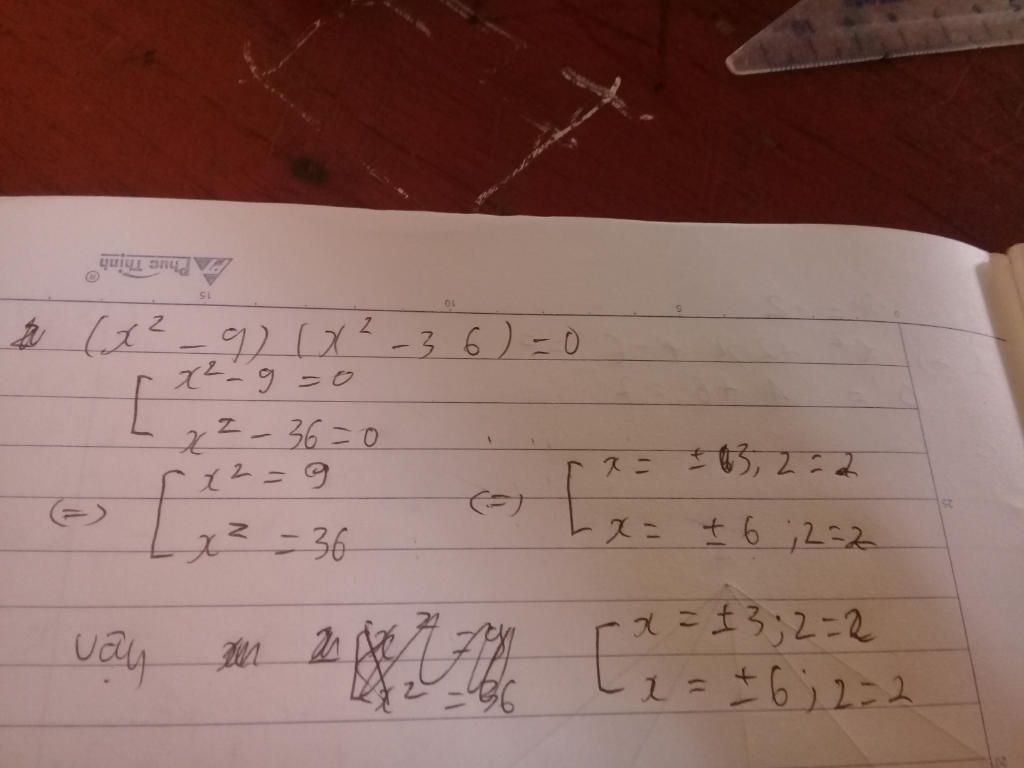 Phuc Thịnh ®
15 10 5 0
(x² - 9) (x² - 36) = 0
[ x² - 9 = 0
x² - 36 = 0
(=) [ x² = 9
x² = 36
(=) [ x = ± 3; 2 = 2
x = ± 6 ; 2 = 2
25
vậy
x² = 36
[ x = ± 3; 2 = 2
x = ± 6; 2 = 2
20